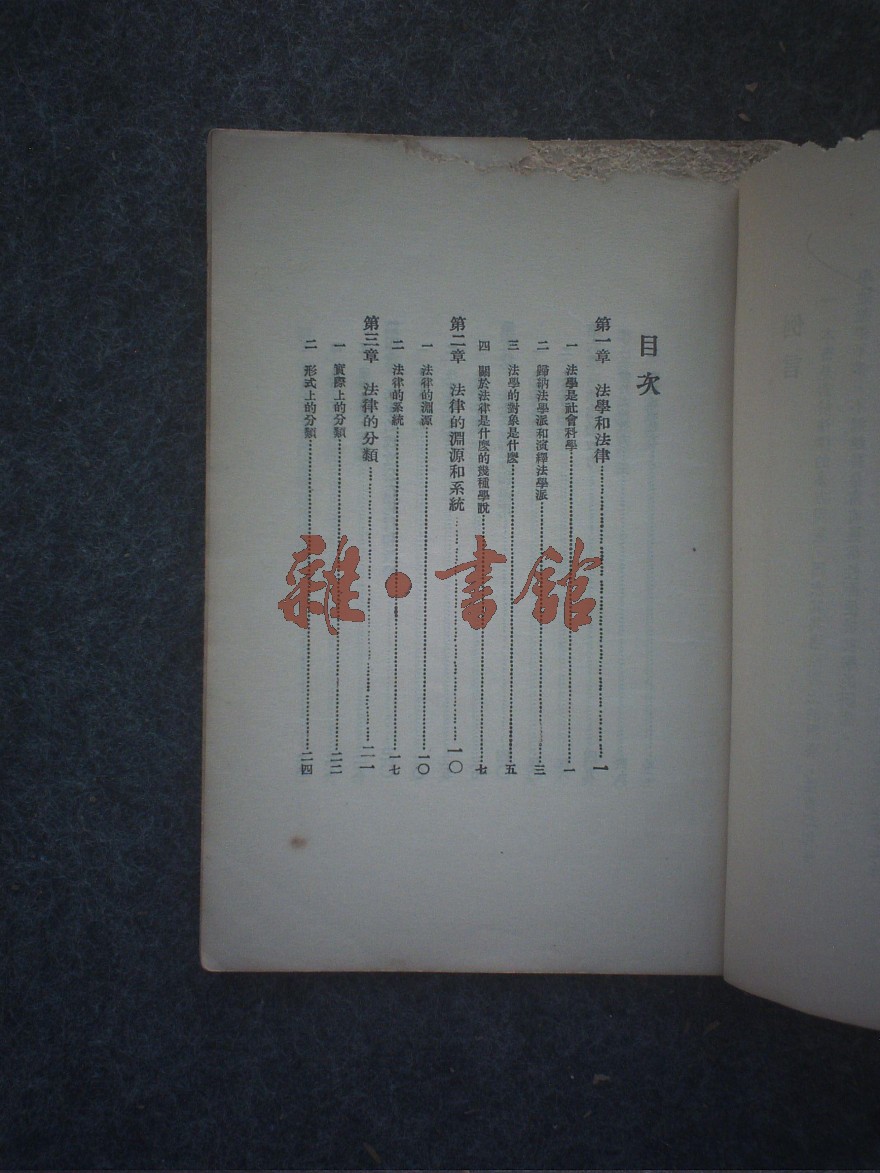 目次
第一章 法學和法律……一
一 法學是社會科學……一
二 歸納法學派和演繹法學派……三
三 法學的對象是什麼……五
四 關於法律是什麼的幾種學說……七
第二章 法律的淵源和系統……一〇
一 法律的淵源……一〇
二 法律的系統……一七
第三章 法律的分類……二一
一 實際上的分類……二二
二 形式上的分類……二四
雜·書館